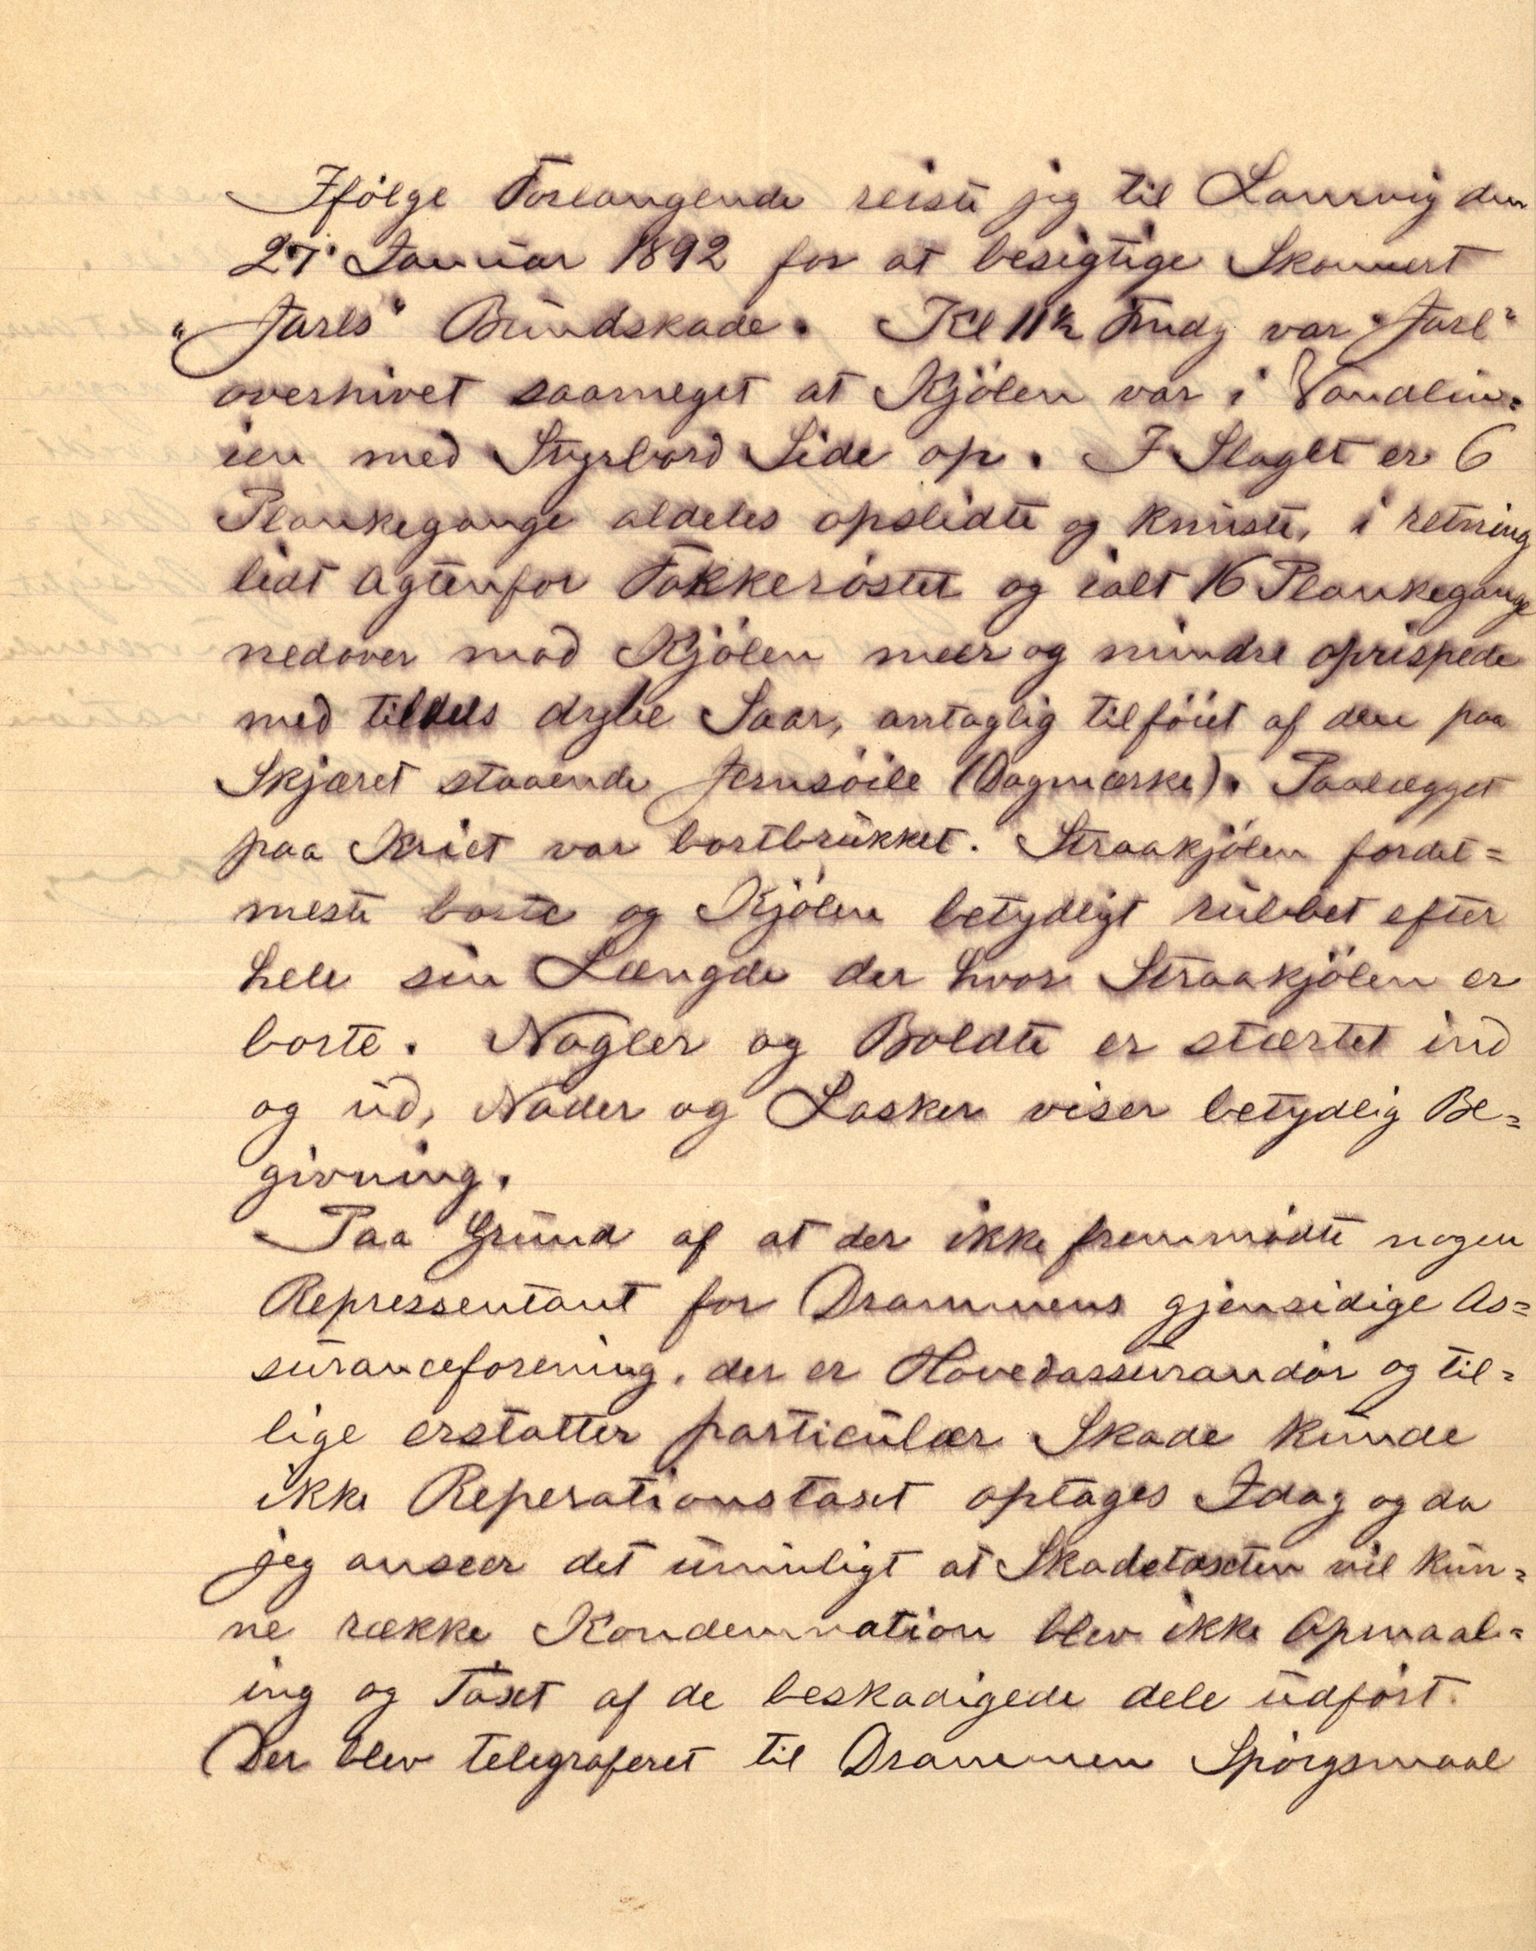 Ifölge Forlangende reiste jeg til Laurvig den
27. Januar 1892 for at besigtige Skonnert
"Jarls" Bundskade. Kl 11½ Fmdg var "Jarl"
overhivet saameget at Kjölen var i Vandlin=
ien med Styrbord Side op. I Slaget er 6
Plankegange aldeles opslidte og knuste, i retning
lidt agtenfor Fokkeröstet og ialt 16 Plankegange
nedover mod Kjölen meer og mindre oprispede
med tildels dybe Saar, antaglig tilföiet af den paa
Skjæret staaende Jernsöile (Dagmærke). Paalægget
paa Kniet var bortbrukket. Straakjölen fordet=
meste borte og Kjölen betydligt rubbet efter
hele sin Længde der hvor Straakjölen er
borte. Nagler og Boldte er stærtet ind
og ud, Nader og Lasker viser betydlig Be=
givning.
Paa Grund af at der ikke fremmödte nogen
Repressentant for Drammens gjensidige As=
suranceforening, der er Hovedassurandör og til=
lige erstatter particulær Skade kunde
ikke Reperationstaxt optages Idag og da
jeg anseer det umuligt at Skadetaxten vil kun=
ne række Kondemnation blev ikke Opmaal=
ing og Taxt af de beskadigede dele udfört.
Der blev telegraferet til Drammen Spörgsmaal